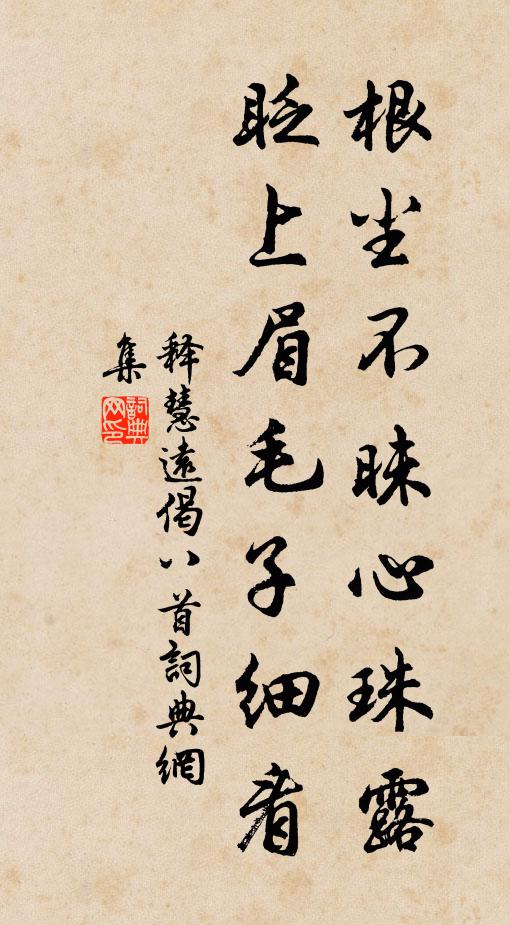 根尘不昧心珠露
眨上眉毛子细看
释慧远偈八首词典網
集
詞典網印